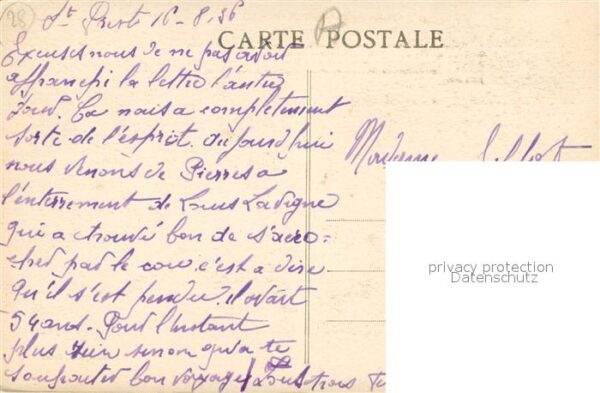 28
St Prest 16-8-36
CARTE POSTALE
Excuses nous de ne pas avoir
affranchi la lettre l'autre
jour. Ca nous a completement
sorte de l'esprit. aujourd'hui
nous venons de Pierres a
l'enterrement de Louis Lavigne
qui a trouvé bon de s'accro=
cher par le cou c'est a dire
qu'il s'est pendu. il avait
54 ans. Pour l'instant
plus rien sinon qu'a te
souhaiter bon voyage Tous trois
Madame
privacy protection
Datenschutz